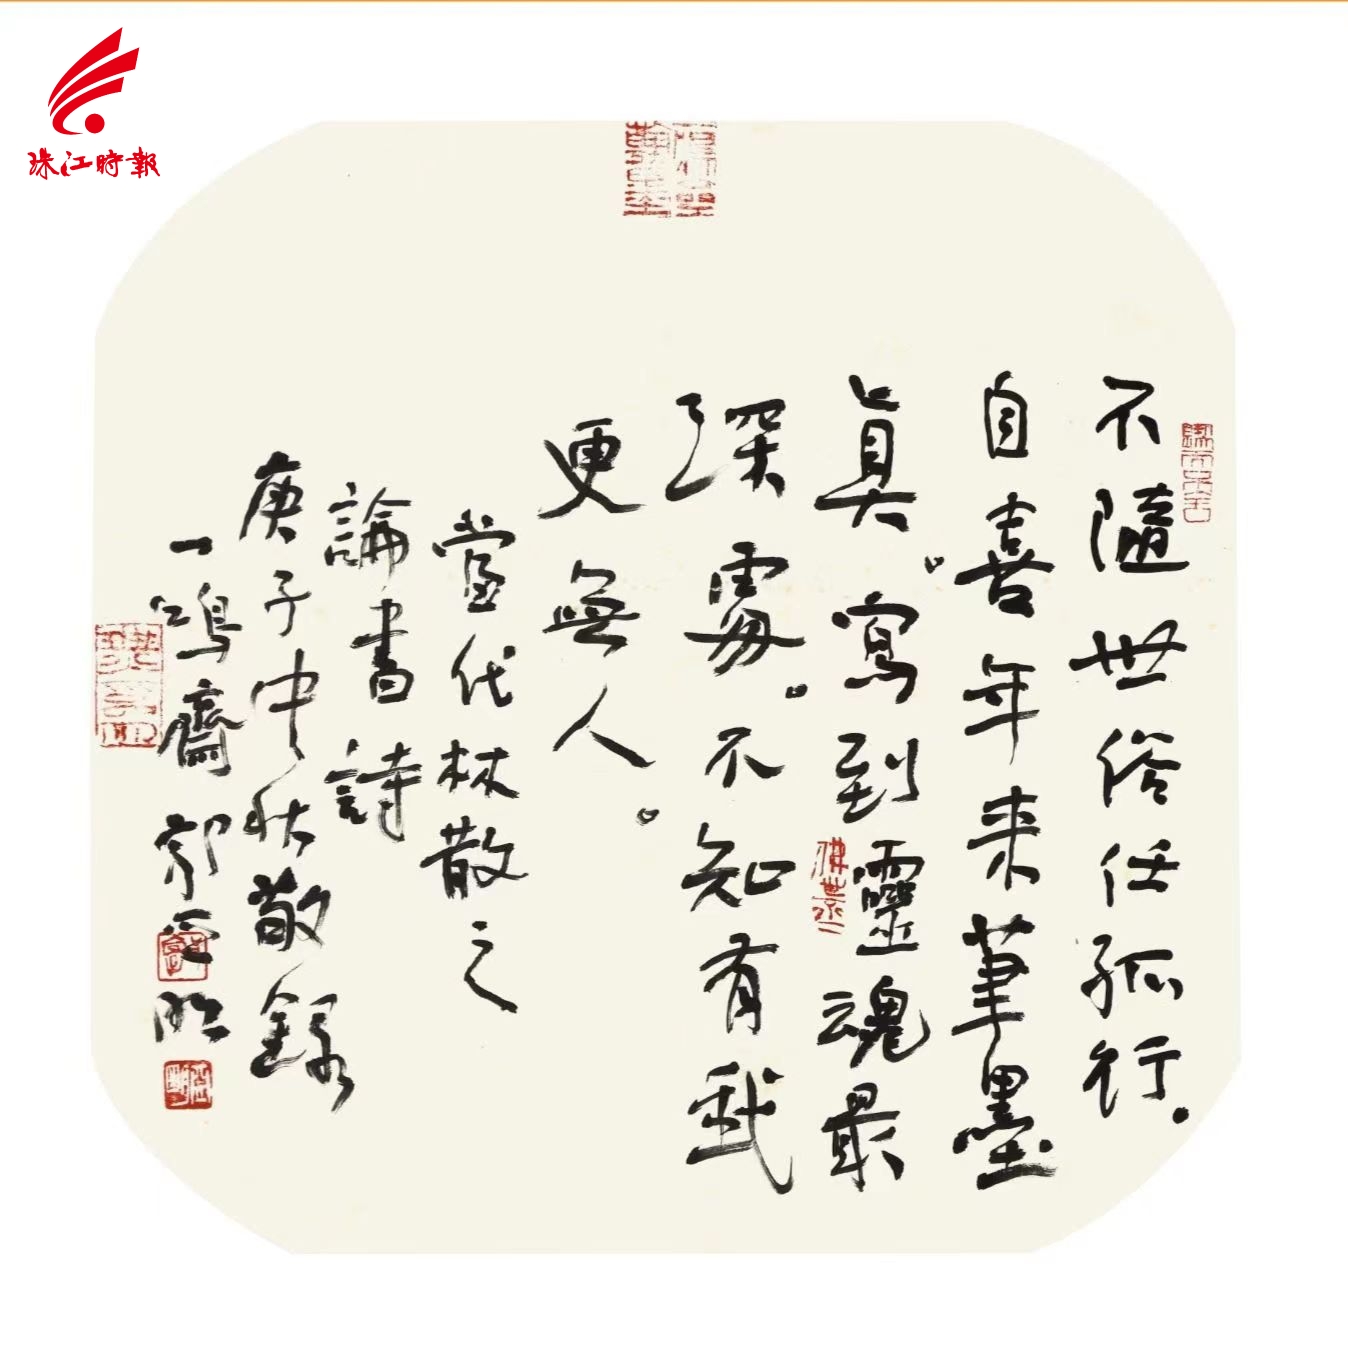 珠江時報
不隨世俗任孤行。
自喜年来筆墨
真。寫到靈魂最
深處。不知有我
更無人。
當代林散之
論書詩
庚子中秋敬錄
一鳴齋郭亞明